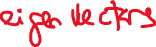 eigen vectors